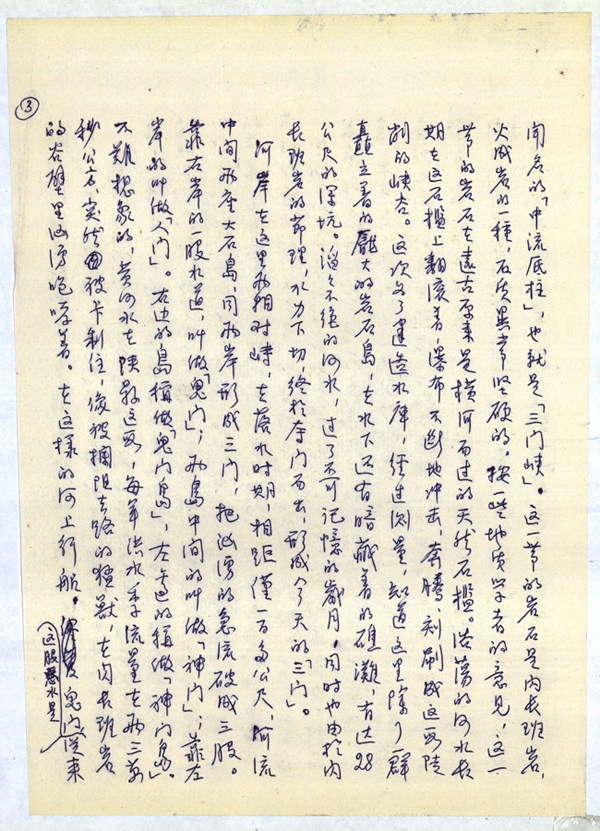 ③
闻名的「中流底柱」，也就是「三门峡」。这一带的岩石是闪长班岩，
火成岩的一种，石质異常坚硬的。按一些地质学者的意见，这一
带的岩石在遠古原来是横河而过的天然石槛。浩荡的河水长
期在这石槛上翻滚着，瀑布不断地冲击，奔腾，刻刷成这陡
削的峡谷。这次为了建造水库，经过测量，知道这里除了一群
矗立着的龐大的岩石島，在水下还有暗藏着的礁滩，有达28
公尺的深坑。滔滔不绝的河水，过了不可记憶的歲月，同时也由於闪
长班岩的节理，水力下切，终於夺门而出，形成今天的「三门」。
河岸在这里两相对峙，在落水时期，相距僅一百多公尺，河流
中间两座大石島，同两岸形成三门，把汹湧的急流破成三股。
靠右岸的一股水道，叫做「鬼门」；两島中间的叫做「神门」；靠左
岸的叫做「人门」。右边的島稱做「鬼门島」，左边的稱做「神门島」。
不難想象的，黄河水在陕縣这，每年洪水季流量在两三萬
秒公方，突然被卡制住，像被攔阻去路的猛獸，在闪长班岩
的谷壁里汹湧咆哮着。在这樣的河上行船，鬼门從来
这股恶水是